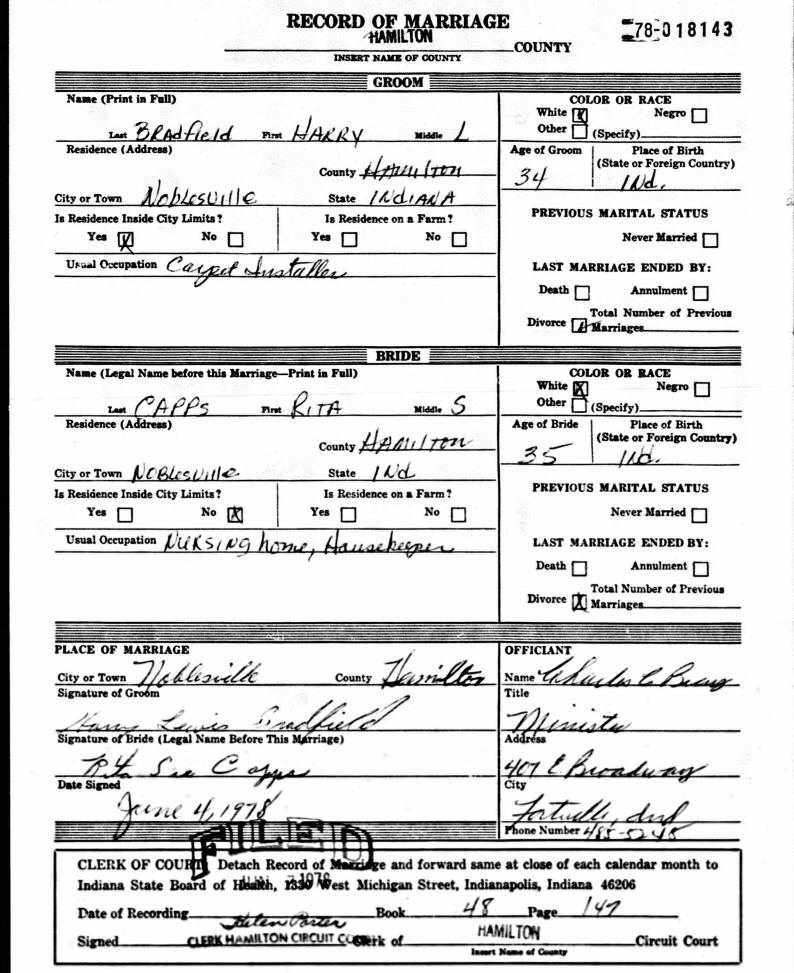 RECORD OF MARRIAGE
78-018143
HAMILTON COUNTY
INSERT NAME OF COUNTY
GROOM
Name (Print in Full)
Last BRAdfield First HARRY Middle L
COLOR OR RACE
White X Negro
Other (Specify)
Residence (Address)
County HAMILTON
City or Town NOblesville State INdIANA
Age of Groom 34
Place of Birth (State or Foreign Country) INd.
Is Residence Inside City Limits? Is Residence on a Farm?
Yes X No Yes No
Usual Occupation Carpet Installer
PREVIOUS MARITAL STATUS
Never Married
LAST MARRIAGE ENDED BY:
Death Annulment
Divorce Total Number of Previous Marriages
BRIDE
Name (Legal Name before this Marriage—Print in Full)
Last CAPPS First RITA Middle S
COLOR OR RACE
White X Negro
Other (Specify)
Residence (Address)
County HAMILTON
City or Town NOBlesville State INd
Age of Bride 35
Place of Birth (State or Foreign Country) INd.
Is Residence Inside City Limits? Is Residence on a Farm?
Yes No X Yes No
Usual Occupation NURSING home, Housekeeper
PREVIOUS MARITAL STATUS
Never Married
LAST MARRIAGE ENDED BY:
Death Annulment
Divorce X Total Number of Previous Marriages
PLACE OF MARRIAGE
City or Town Noblesville County Hamilton
Signature of Groom
Harry Lewis Bradfield
Signature of Bride (Legal Name Before This Marriage)
Rita Sue Capps
Date Signed
June 4, 1978
OFFICIANT
Name Charles C
Title
Minister
Address
407 E Broadway
City
Fortville, Ind
Phone Number 485-5245
FILED
CLERK OF COURT: Detach Record of Marriage and forward same at close of each calendar month to
Indiana State Board of Health, 1330 West Michigan Street, Indianapolis, Indiana 46206
1978
Date of Recording Book 48 Page 147
Helen Porter
Signed CLERK HAMILTON CIRCUIT COURT Clerk of HAMILTON Circuit Court
Insert Name of County